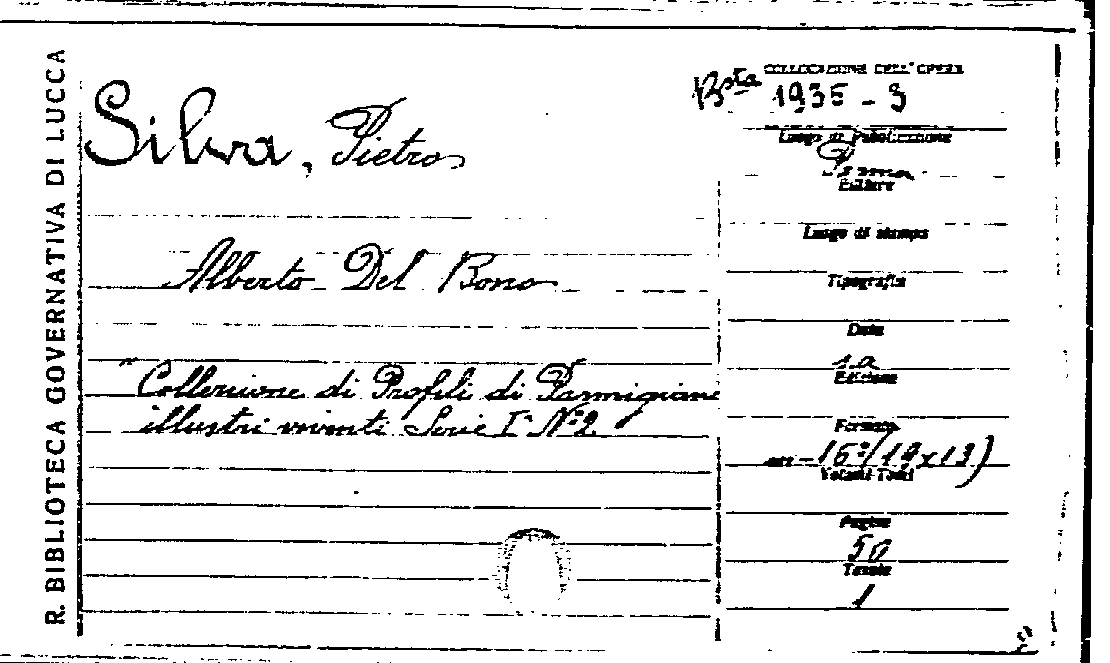 R. BIBLIOTECA GOVERNATIVA DI LUCCA
Silva, Pietro
Alberto Del Bono
"Collezione di Profili di Parmigiani
illustri viventi Serie Iª Nº 2
COLLOCAZIONE DELL'OPERA
Bsta 1935 - 3
Luogo di pubblicazione
Parma
Editore
Luogo di stampa
Tipografia
Data
s.a
Edizione
Formato
in-16º (19x13)
Volumi Tomi
Pagine
50
Tavole
1